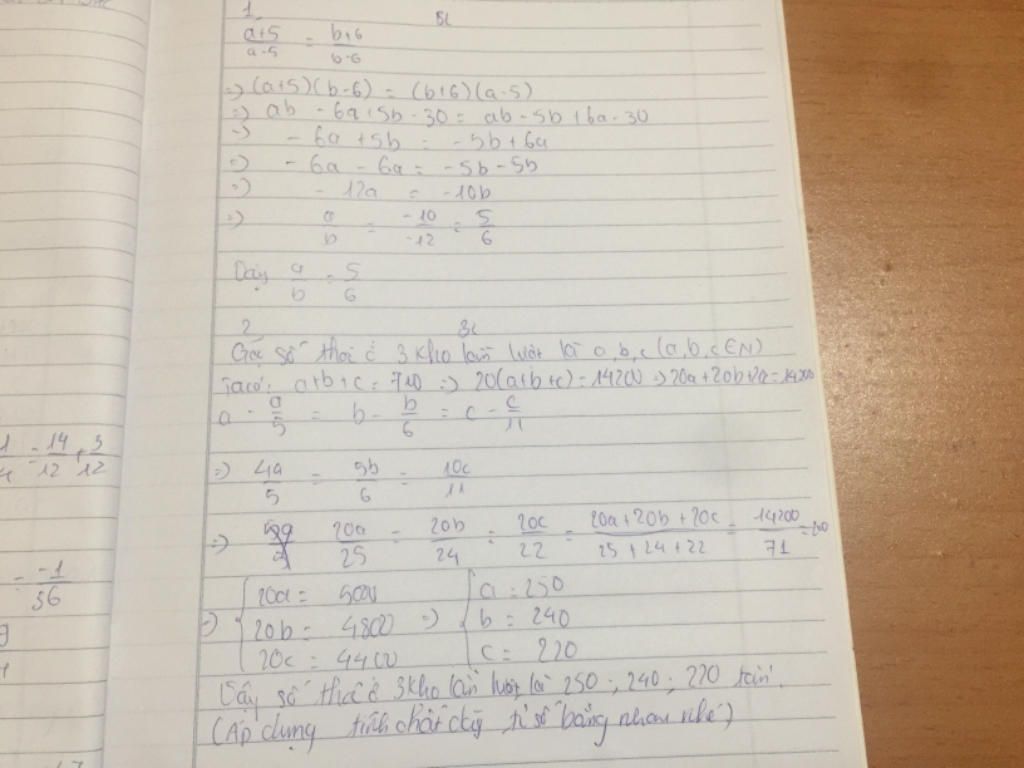 1 BL
a+5/a-5 = b+6/b-6
=> (a+5)(b-6) = (b+6)(a-5)
=> ab - 6a + 5b - 30 = ab - 5b + 6a - 30
=> - 6a + 5b = - 5b + 6a
=> - 6a - 6a = - 5b - 5b
=> - 12a = - 10b
=> a/b = -10/-12 = 5/6
Vậy a/b = 5/6
2 BL
Gọi số thóc ở 3 kho lần lượt là a, b, c (a, b, c ∈ N)
Ta có: a+b+c = 710 => 20(a+b+c) = 14200 => 20a+20b+20c=14200
a - a/5 = b - b/6 = c - c/11
=> 4a/5 = 5b/6 = 10c/11
=> 20a/25 = 20b/24 = 20c/22 = 20a+20b+20c/25+24+22 = 14200/71 = 200
=> 20a = 5000 => a = 250
20b = 4800 b = 240
20c = 4400 c = 220
Vậy số thóc ở 3 kho lần lượt là 250 ; 240 ; 220 tấn.
(Áp dụng tính chất dãy tỉ số bằng nhau nhé)
1/4 = -14/12 + 3/12
= -1/36